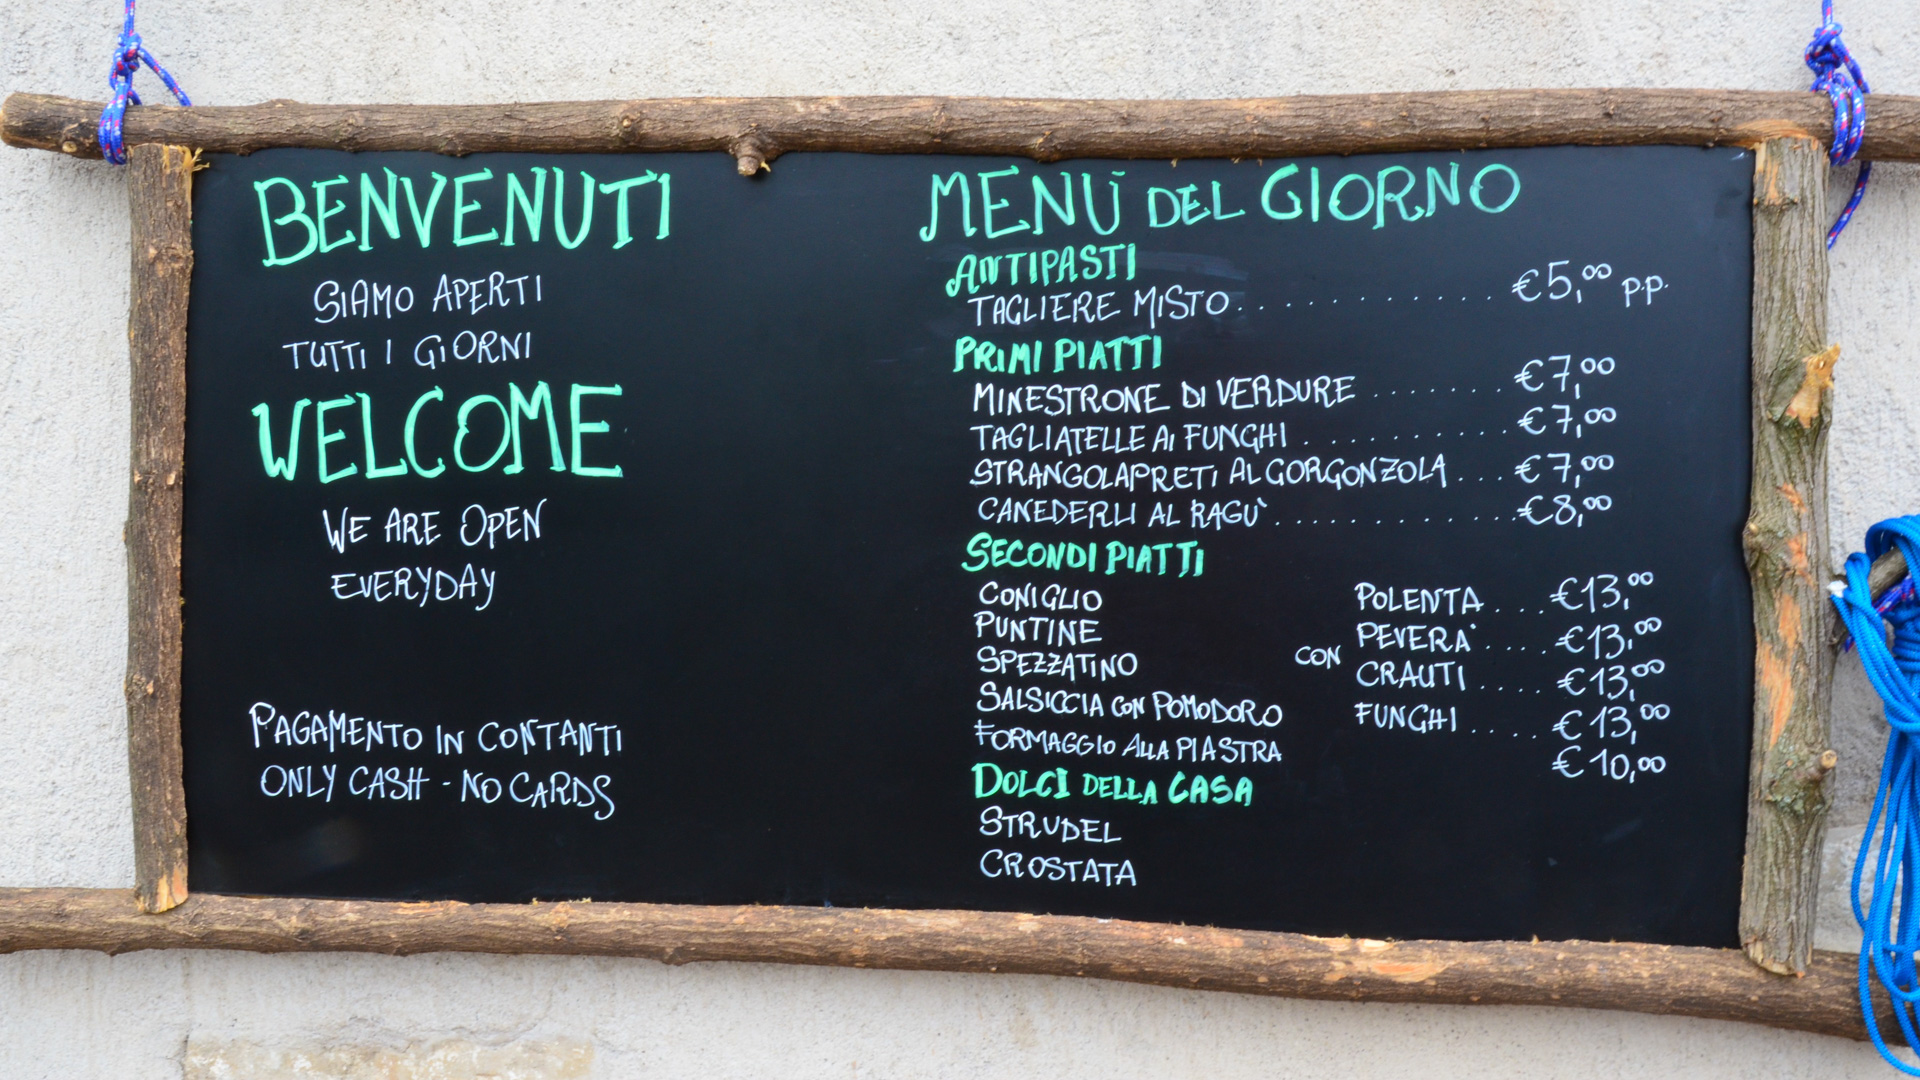 BENVENUTI
SIAMO APERTI
TUTTI I GIORNI
WELCOME
WE ARE OPEN
EVERYDAY
PAGAMENTO IN CONTANTI
ONLY CASH - NO CARDS
MENÙ DEL GIORNO
ANTIPASTI
TAGLIERE MISTO . . . . . . . . . . . . €5,00 p.p.
PRIMI PIATTI
MINESTRONE DI VERDURE . . . . . . . €7,00
TAGLIATELLE AI FUNGHI . . . . . . . . . . €7,00
STRANGOLAPRETI AL GORGONZOLA . . . €7,00
CANEDERLI AL RAGÙ . . . . . . . . . . . . €8,00
SECONDI PIATTI
CONIGLIO POLENTA . . . €13,00
PUNTINE PEVERA' . . . . €13,00
SPEZZATINO CON CRAUTI . . . . €13,00
SALSICCIA CON POMODORO FUNGHI . . . . €13,00
FORMAGGIO ALLA PIASTRA €10,00
DOLCI DELLA CASA
STRUDEL
CROSTATA